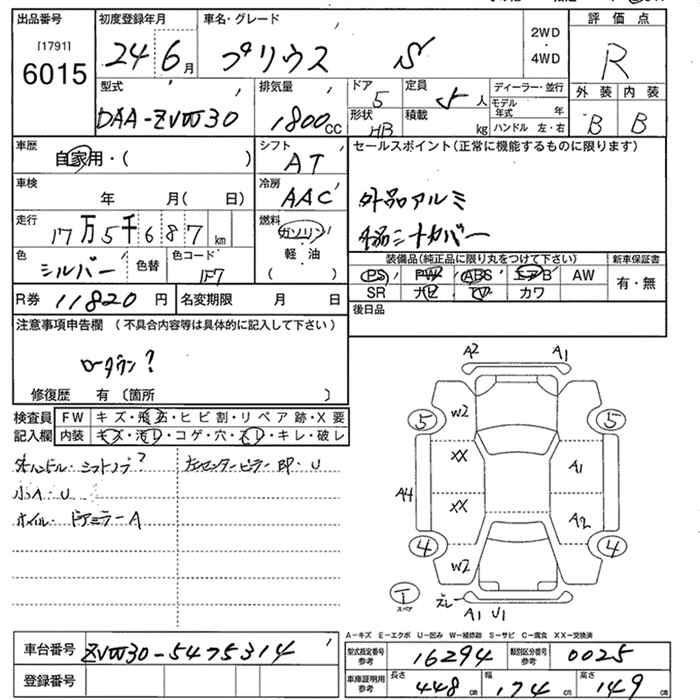 出品番号 初度登録年月 車名・グレード 2WD・4WD 評価点
[1791]
6015 24 6月 プリウス S R
型式 排気量 ドア 定員 ディーラー・並行 外装 内装
DAA-ZVW30 1800CC 5 5人 モデル年式 年 B B
形状 HB 積載 kg ハンドル 左・右
車歴 シフト セールスポイント(正常に機能するものに限ります)
自家用・( ) AT
車検 冷房 外品アルミ
年 月( 日) AAC
走行 燃料
17万5千687km ガソリン・軽油( )
色 色替 色コード 装備品(純正品に限り丸をつけて下さい) 新車保証書
シルバー 1F7 PS PW ABS エアB AW 有・無
R券 11820円 名変期限 月 日 SR ナビ TV カワ
後日品
注意事項申告欄 (不具合内容等は具体的に記入して下さい)
ローダウン?
修復歴 有〔箇所 〕
検査員 FW キズ・飛石・ヒビ割・リペア跡・X要
記入欄 内装 キズ・汚レ・コゲ・穴・スレ・キレ・破レ
ハンドル・シフトノブ?
小A・U
ホイル・ドアミラーA
左センターピラー
A2 A1
5 W2 5
XX A1
A4
XX A2
4 W2 4
T スペア
A1 U1
A-キズ E-エクボ U-凹み W-補修跡 S-サビ C-腐食 XX-交換済
車台番号 ZVW30-5475314
登録番号
型式指定番号参考 16294 類別区分番号参考 0025
車庫証明用参考 長さ 448cm 幅 174cm 高さ 149cm